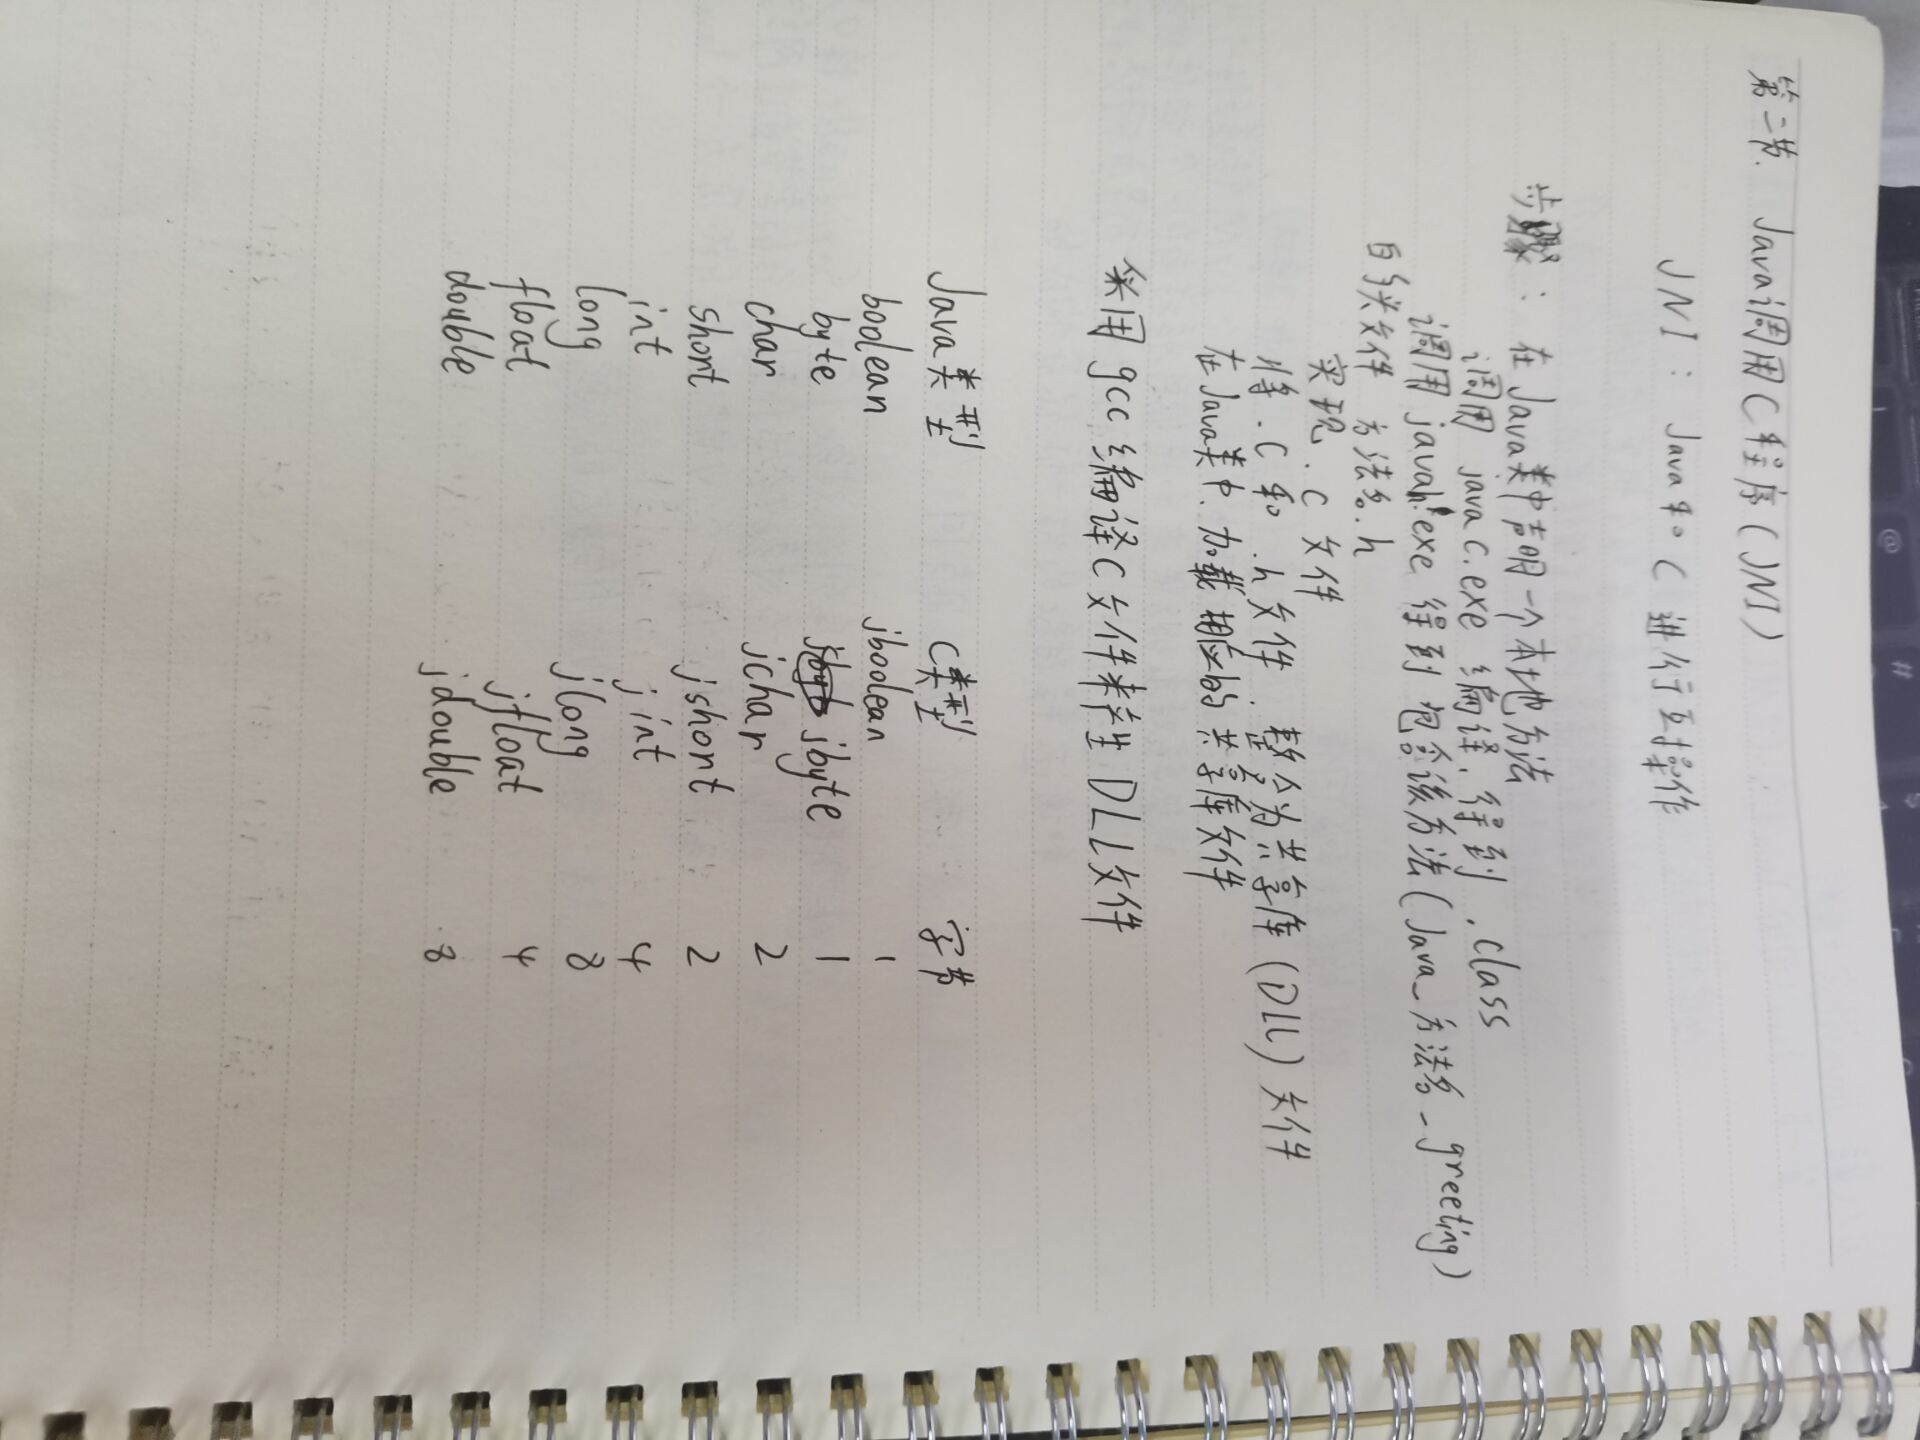 第二节 Java调用C程序(JNI)
JNI: Java和C进行互操作
步骤: 在Java类中声明一个本地方法
调用 javac.exe 编译,得到.class
调用 javah.exe 得到包含该方法(Java_方法名_greeting)
的头文件 方法名.h
实现.c文件
将.c和.h文件,整合为共享库(DLL)文件
在Java类中,加载相应的共享库文件
采用gcc编译C文件来产生DLL文件
Java类型 C类型 字节
boolean jboolean 1
byte jbyte 1
char jchar 2
short jshort 2
int jint 4
long jlong 8
float jfloat 4
double jdouble 8